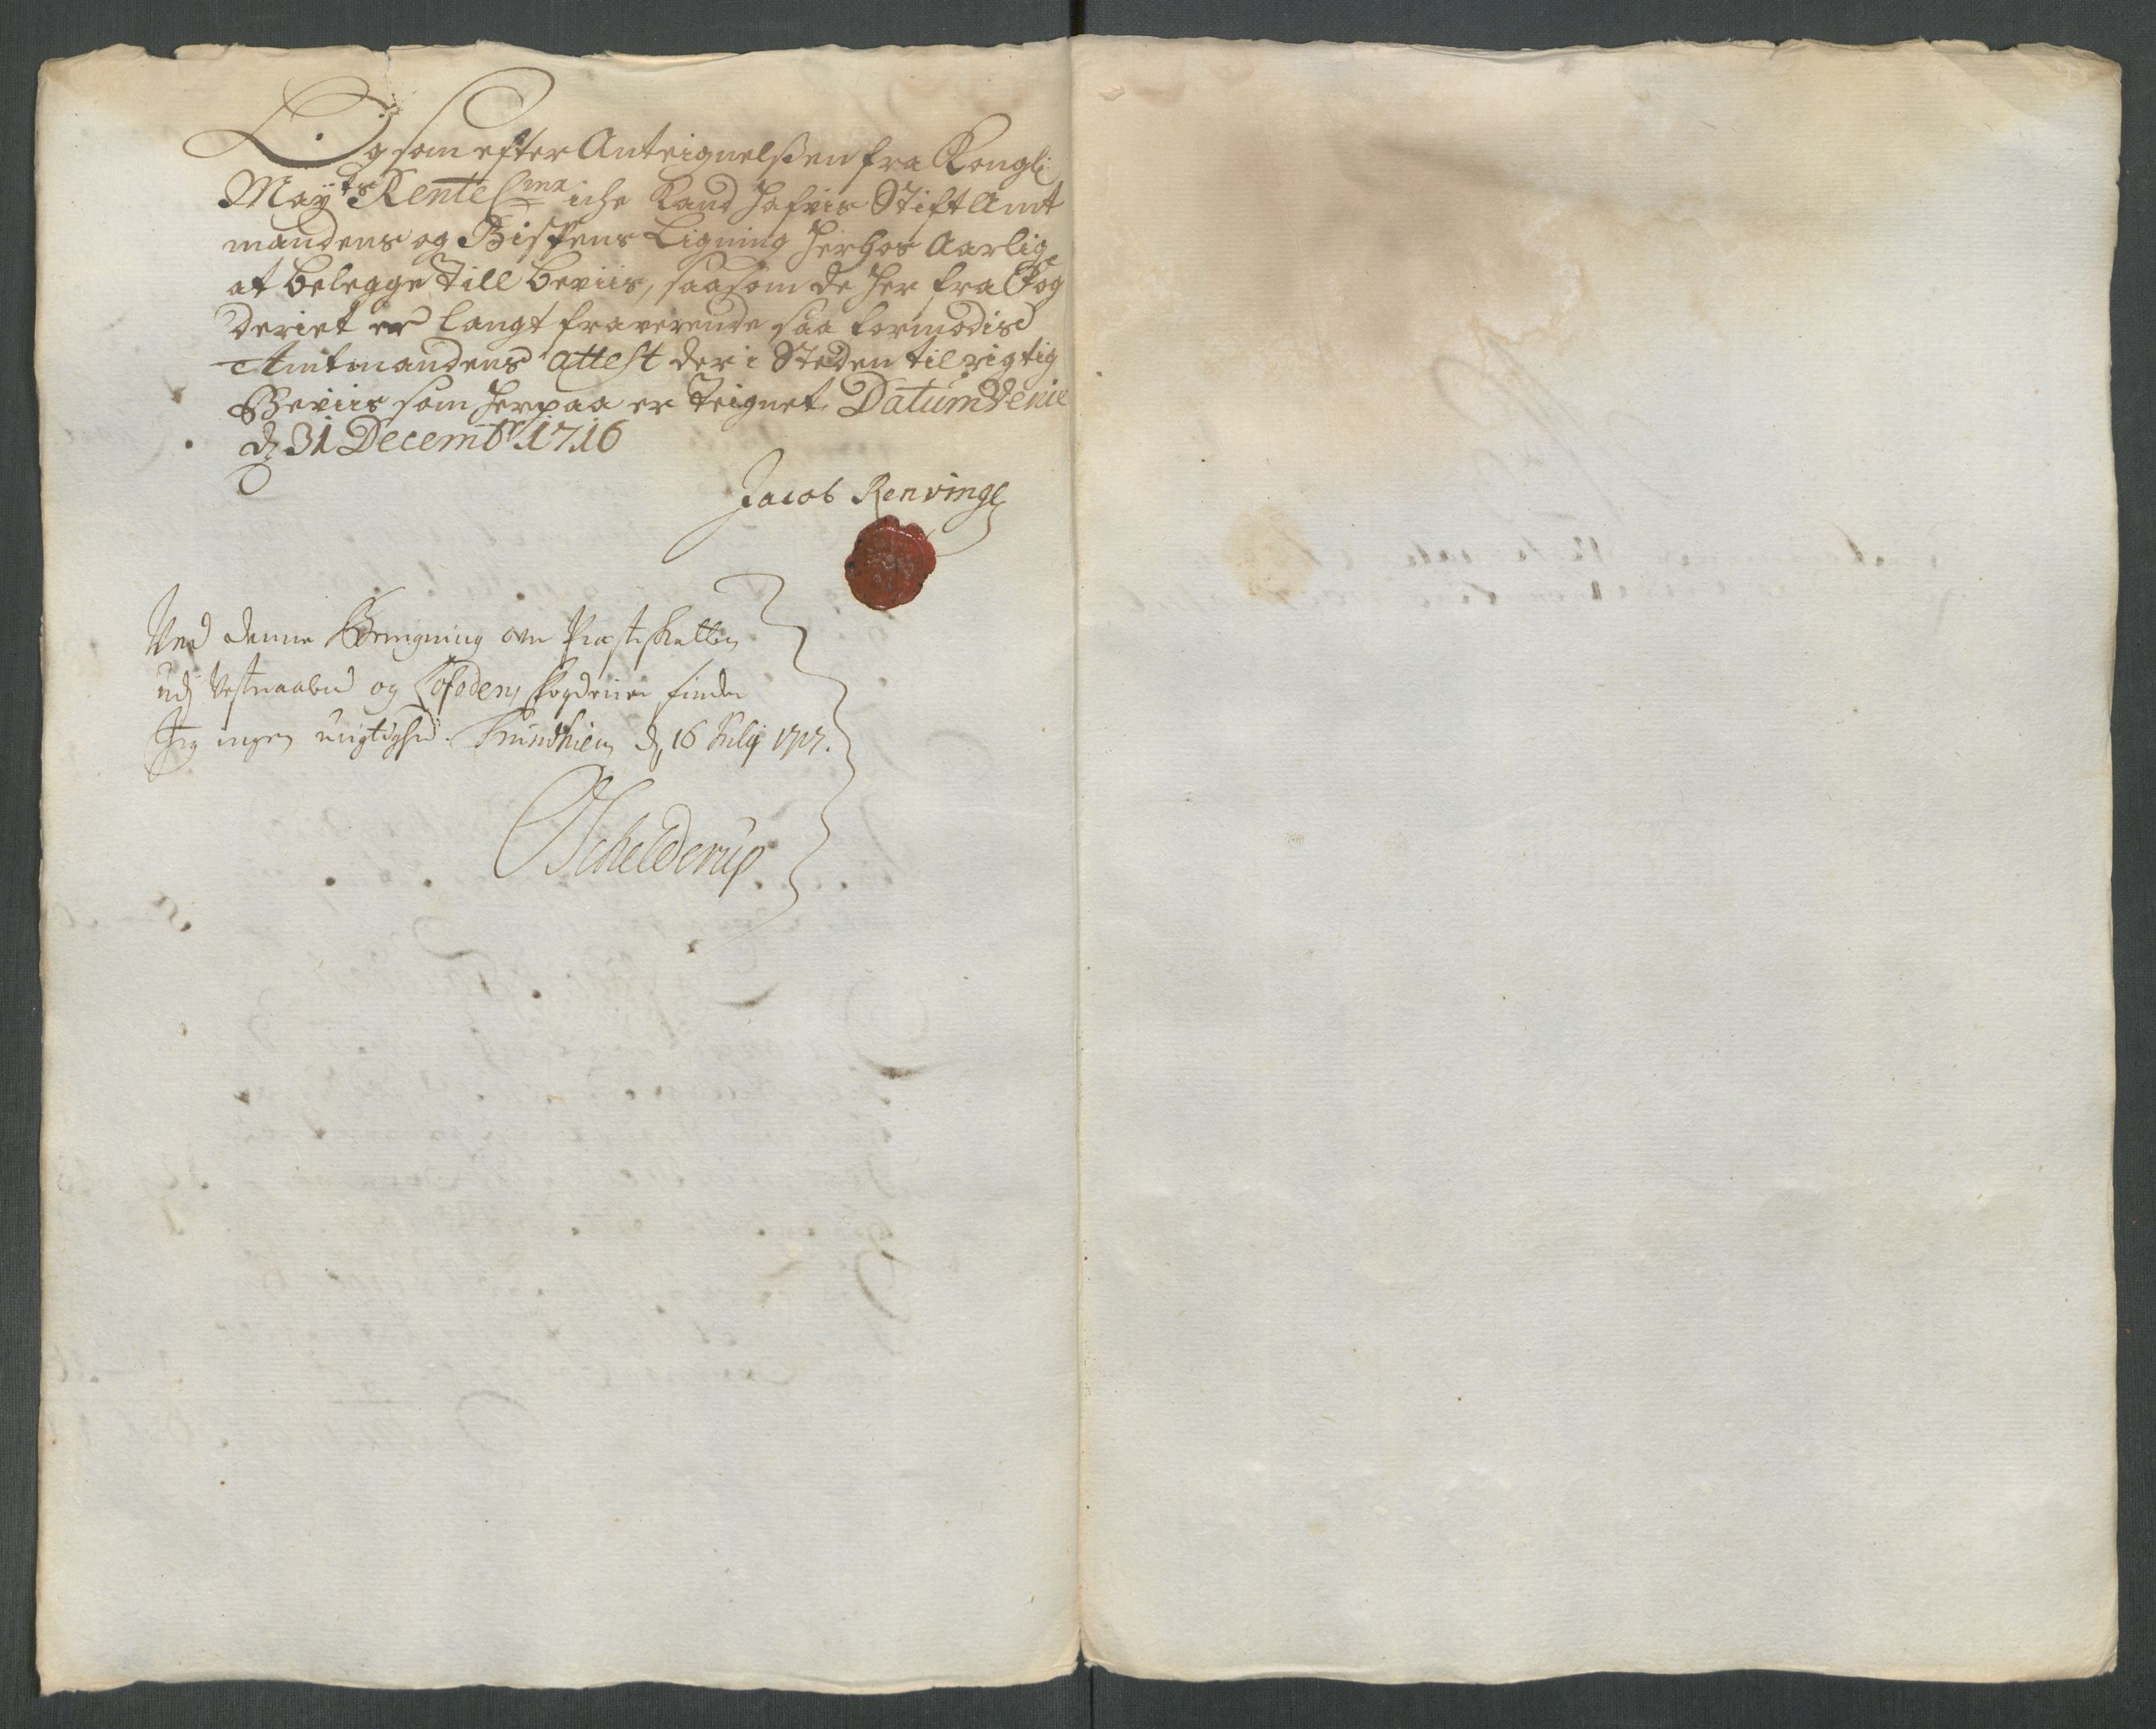 Og som efter Anteignelsen fra Kongl:
May:ts Rente C:mr iche Kand hafvis Stift Amt
mandens og Bispens Ligning herhos Aarlig
at belegge till beviis, saasom de her fra Fog
deriet er langt fraverende saa formodis
Amtmandens attest der i Steden til rigtig
Beviis som herpaa er teignet. Datum
d. 31 Decembr. 1716
Jacob Renving
Ved denne Beregning over Præsteskatten
udj Vesteraalens og Lofodens fogderier finder
Jeg ingen urigtighed. Trundhiem d. 16 July 1717.
Schelderup